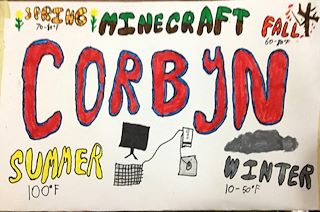 SPRING
70-80°F
MINECRAFT
FALL
60-80°F
CORBYN
SUMMER
100°F
WINTER
10-50°F